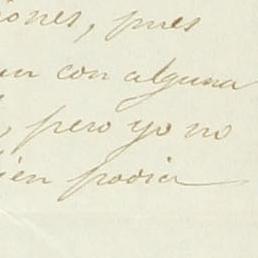 iones, pues
un con alguna
, pero yo no
ien podia